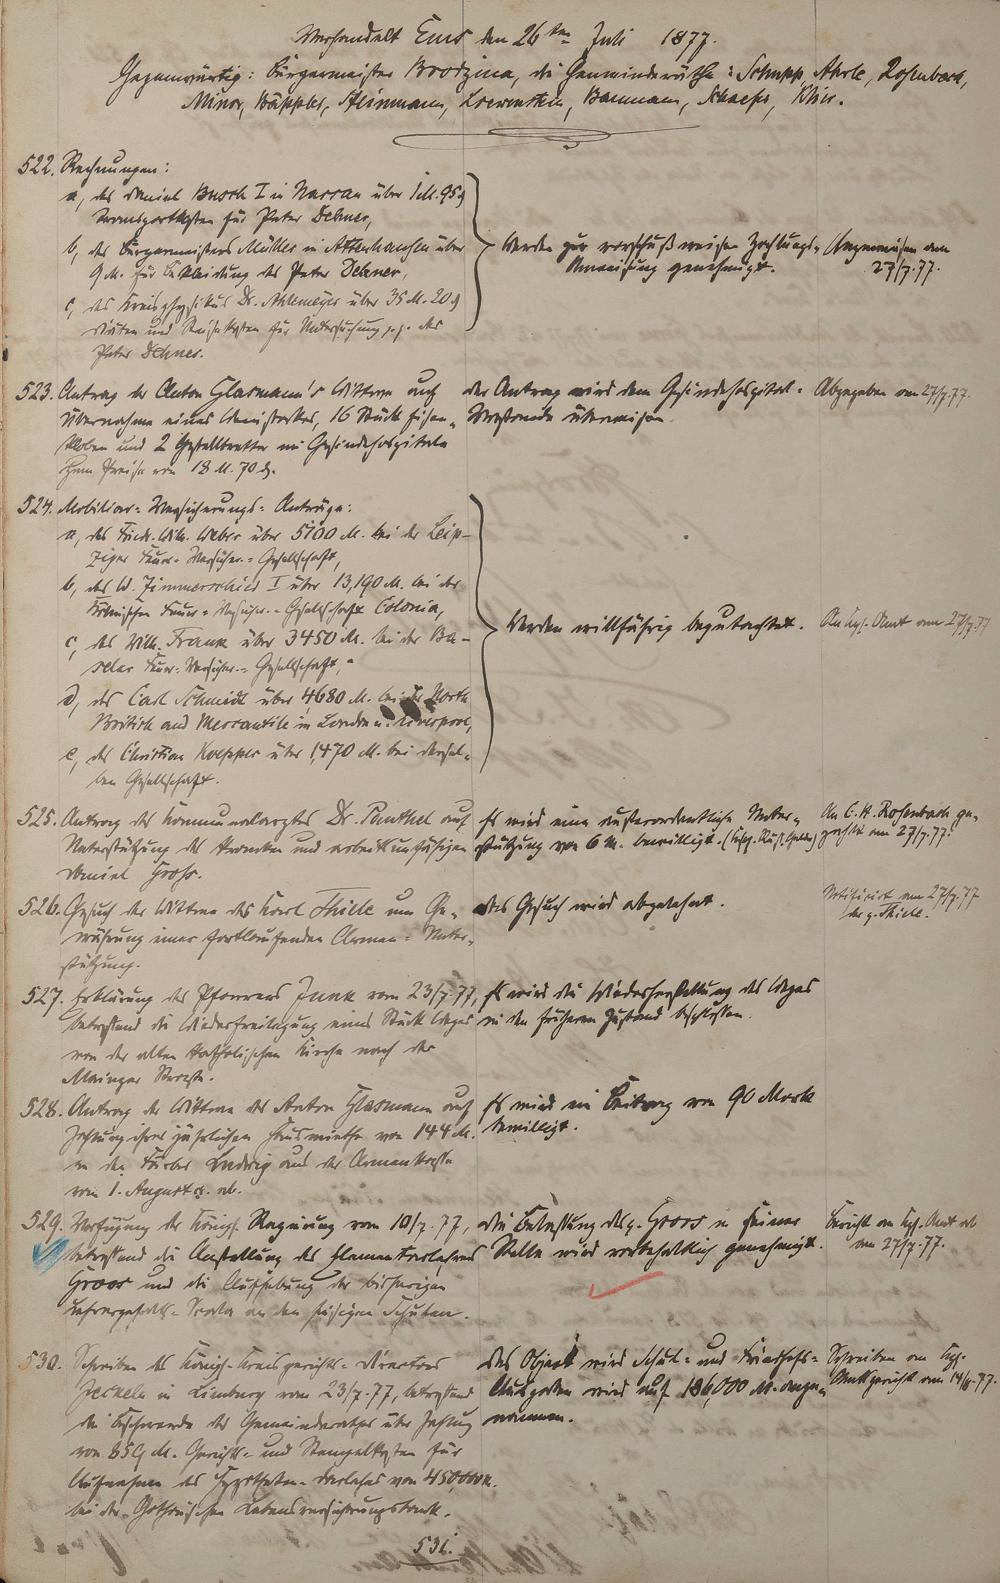 Verhandelt Ems den 26ten Juli 1877.
Gegenwärtig: Bürgermeister Brodzina, die Gemeinderäthe: Schupp, Ahrle, Rosenbach,
Minor, Käppler, Steinmann, Loewenstein, Baumann, Schaefer, Klier.
522. Rechnungen:
a, des Daniel Busch I in Nassau über 1 M. 95 ₰
Transportkosten für Peter Dehner,
b, des Bürgermeisters Müller in Attenhausen über
9 M. für Bekleidung des Peter Dehner,
c, des Kreisphysikus Dr. Ahlemeyer über 35 M. 20 ₰
Diäten und Reisekosten für Untersuchung p.p. des
Peter Dehner.
Werden zur vorschußweisen Zahlungs-
Anweisung genehmigt.
Angewiesen am
27/7.77.
523. Antrag der Anton Glasmann's Wittwe auf
Übernahme eines 16 Stück Eisen-
kloben und 2 Gestellbretter im Gesindehospitale
zum Preise von 18 M. 70 ₰.
Der Antrag wird dem Gesindehospital-
Vorstande überwiesen.
Abgegeben am 27/7.77.
524. Mobiliar-Versicherungs-Anträge:
a, des Friedr. Wilh. Weber über 5100 M. bei der Leip-
ziger Feuer-Versicher.-Gesellschaft,
b, des W. Zimmerschied I über 13,190 M. bei der
Kölnischen Feuer-Versicher.-Gesellschaft Colonia,
c, des Wilh. Frank über 3450 M. bei der Ba-
seler Feuer-Versicher.-Gesellschaft,
d, des Carl Schmidt über 4680 M. bei der North
British and Mercantile in London u. Liverpool,
e, des Christian Koeppler über 1,470 M. bei dersel-
ben Gesellschaft.
Werden willfährig begutachtet.
An Kgl. Amt am 27/7.77
525. Antrag des Kommunalarztes Dr. Panthel auf
Unterstützung des kranken und arbeitsunfähigen
Daniel Groß.
Es wird eine außerordentliche Unter-
stützung von 6 M. bewilligt.
An C. H. Rosenbach ge-
zahlt am 27/7.77.
526. Gesuch der Wittwe des Karl Thiele um Ge-
währung einer fortlaufenden Armen-Unter-
stützung.
Das Gesuch wird abgelehnt.
Notificirt am 27/7.77
der p. Thiele.
527. Erklärung des Pfarrers Junk vom 23/7.77,
betreffend die Wiederfreilegung eines Stück Weges
von der alten katholischen Kirche nach der
Mainzer Straße.
Es wird die Wiederherstellung des Weges
in den früheren Zustand beschlossen.
528. Antrag der Wittwe des Anton Glasmann auf
Zahlung ihrer jährlichen Hausmiethe von 144 M.
an den Färber Ludwig aus der Armenkasse
vom 1. August cr. ab.
Es wird ein Beitrag von 90 Mark
bewilligt.
529. Verfügung der Königl. Regierung vom 10/7.77,
betreffend die Anstellung des Elementarlehrers
Groos und die Aufhebung der bisherigen
Lehrergehalts-Scala an den hiesigen Schulen.
Die Belassung des p. Groos in seiner
Stelle wird vorbehaltlich genehmigt.
Bericht an Kgl. Amt ab
am 27/7.77.
530. Schreiben des Königl. Kreisgerichts-Directors
in Limburg vom 23/7.77, betreffend
die Beschwerde des Gemeinderathes über Zahlung
von 859 M. Gerichts- und Stempelkosten für
Aufnahme des Hypotheken-Darlehes von 450,000 M.
bei der Gothaischen Lebensversicherungsbank.
Das Object wird Schul- und Friedhofs-
Ausgaben wird auf 186,000 M. ange-
nommen.
Schreiben an Kgl.
Amtsgericht am
531.